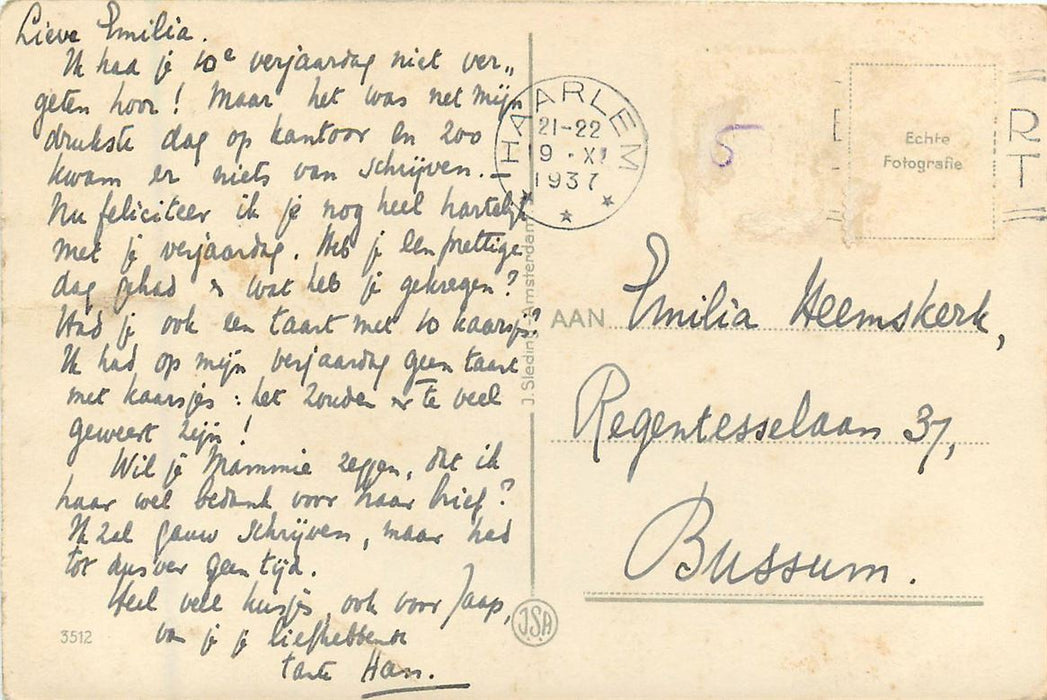 Lieve Emilia.
Ik had je 10e verjaardag niet ver„
geten hoor! Maar het was net mijn
drukste dag op kantoor en zoo
kwam er niets van schrijven. –
Nu feliciteer ik je nog heel hartelijk
met je verjaardag. Heb je een prettige
dag gehad en wat heb je gekregen?
Had je ook een taart met 10 kaarsjes?
Ik had op mijn verjaardag geen taart
met kaarsjes: het zouden er te veel
geweest zijn!
Wil je Mammie zeggen, dat ik
haar wel bedank voor haar brief?
Ik zal gauw schrijven, maar had
tot dusver geen tijd.
Heel veel kusjes, ook voor Jaap,
van je je liefhebbende
tante Han.
3512
HAARLEM
21-22
9 · XI
1937
5
Echte
Fotografie
R
T
J. Sleding, Amsterdam
AAN Emilia Heemskerk,
Regentesselaan 37,
Bussum.
JSA